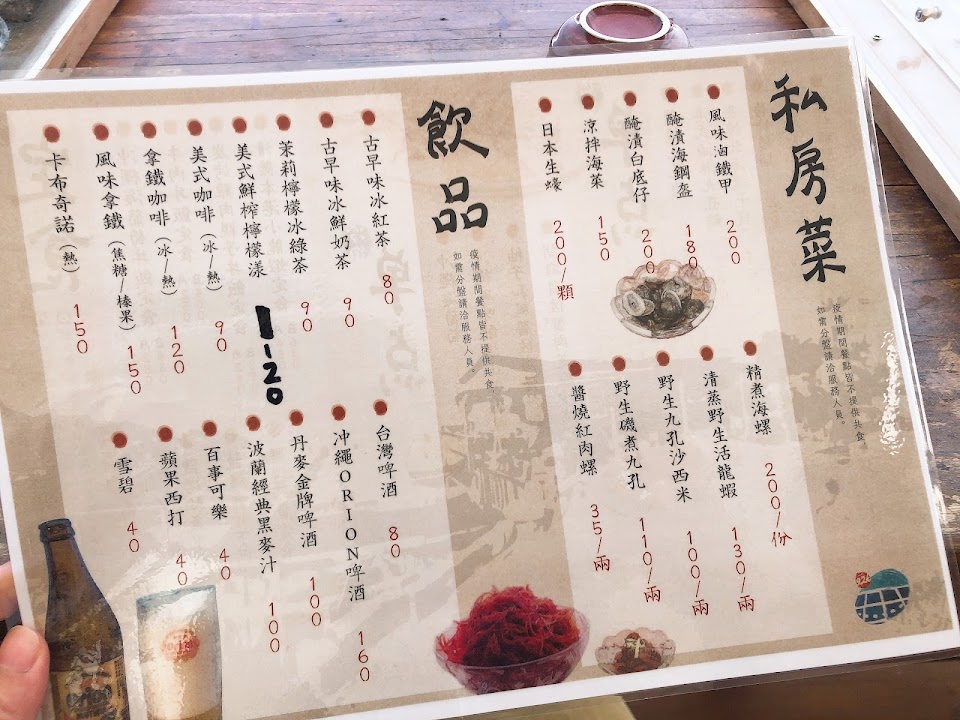 私房菜
疫情期間餐點皆不提供共食，
如需分盤請洽服務人員。
風味滷鐵甲 200
醃漬海鋼盔 180
醃漬白底仔 200
涼拌海菜 150
日本生蠔 200/顆
精煮海螺 200/份
清蒸野生活龍蝦 130/兩
野生九孔沙西米 100/兩
野生磯煮九孔 110/兩
醬燒紅肉螺 35/兩
飲品
疫情期間餐點皆不提供共食，
如需分盤請洽服務人員。
古早味冰紅茶 80
古早味冰鮮奶茶 90
茉莉檸檬冰綠茶 90
美式鮮榨檸檬漾 120
美式咖啡(冰/熱) 90
拿鐵咖啡(冰/熱) 120
風味拿鐵(焦糖/榛果) 150
卡布奇諾(熱) 150
台灣啤酒 80
沖繩ORION啤酒 160
丹麥金牌啤酒 100
波蘭經典黑麥汁 100
百事可樂 40
蘋果西打 40
雪碧 40